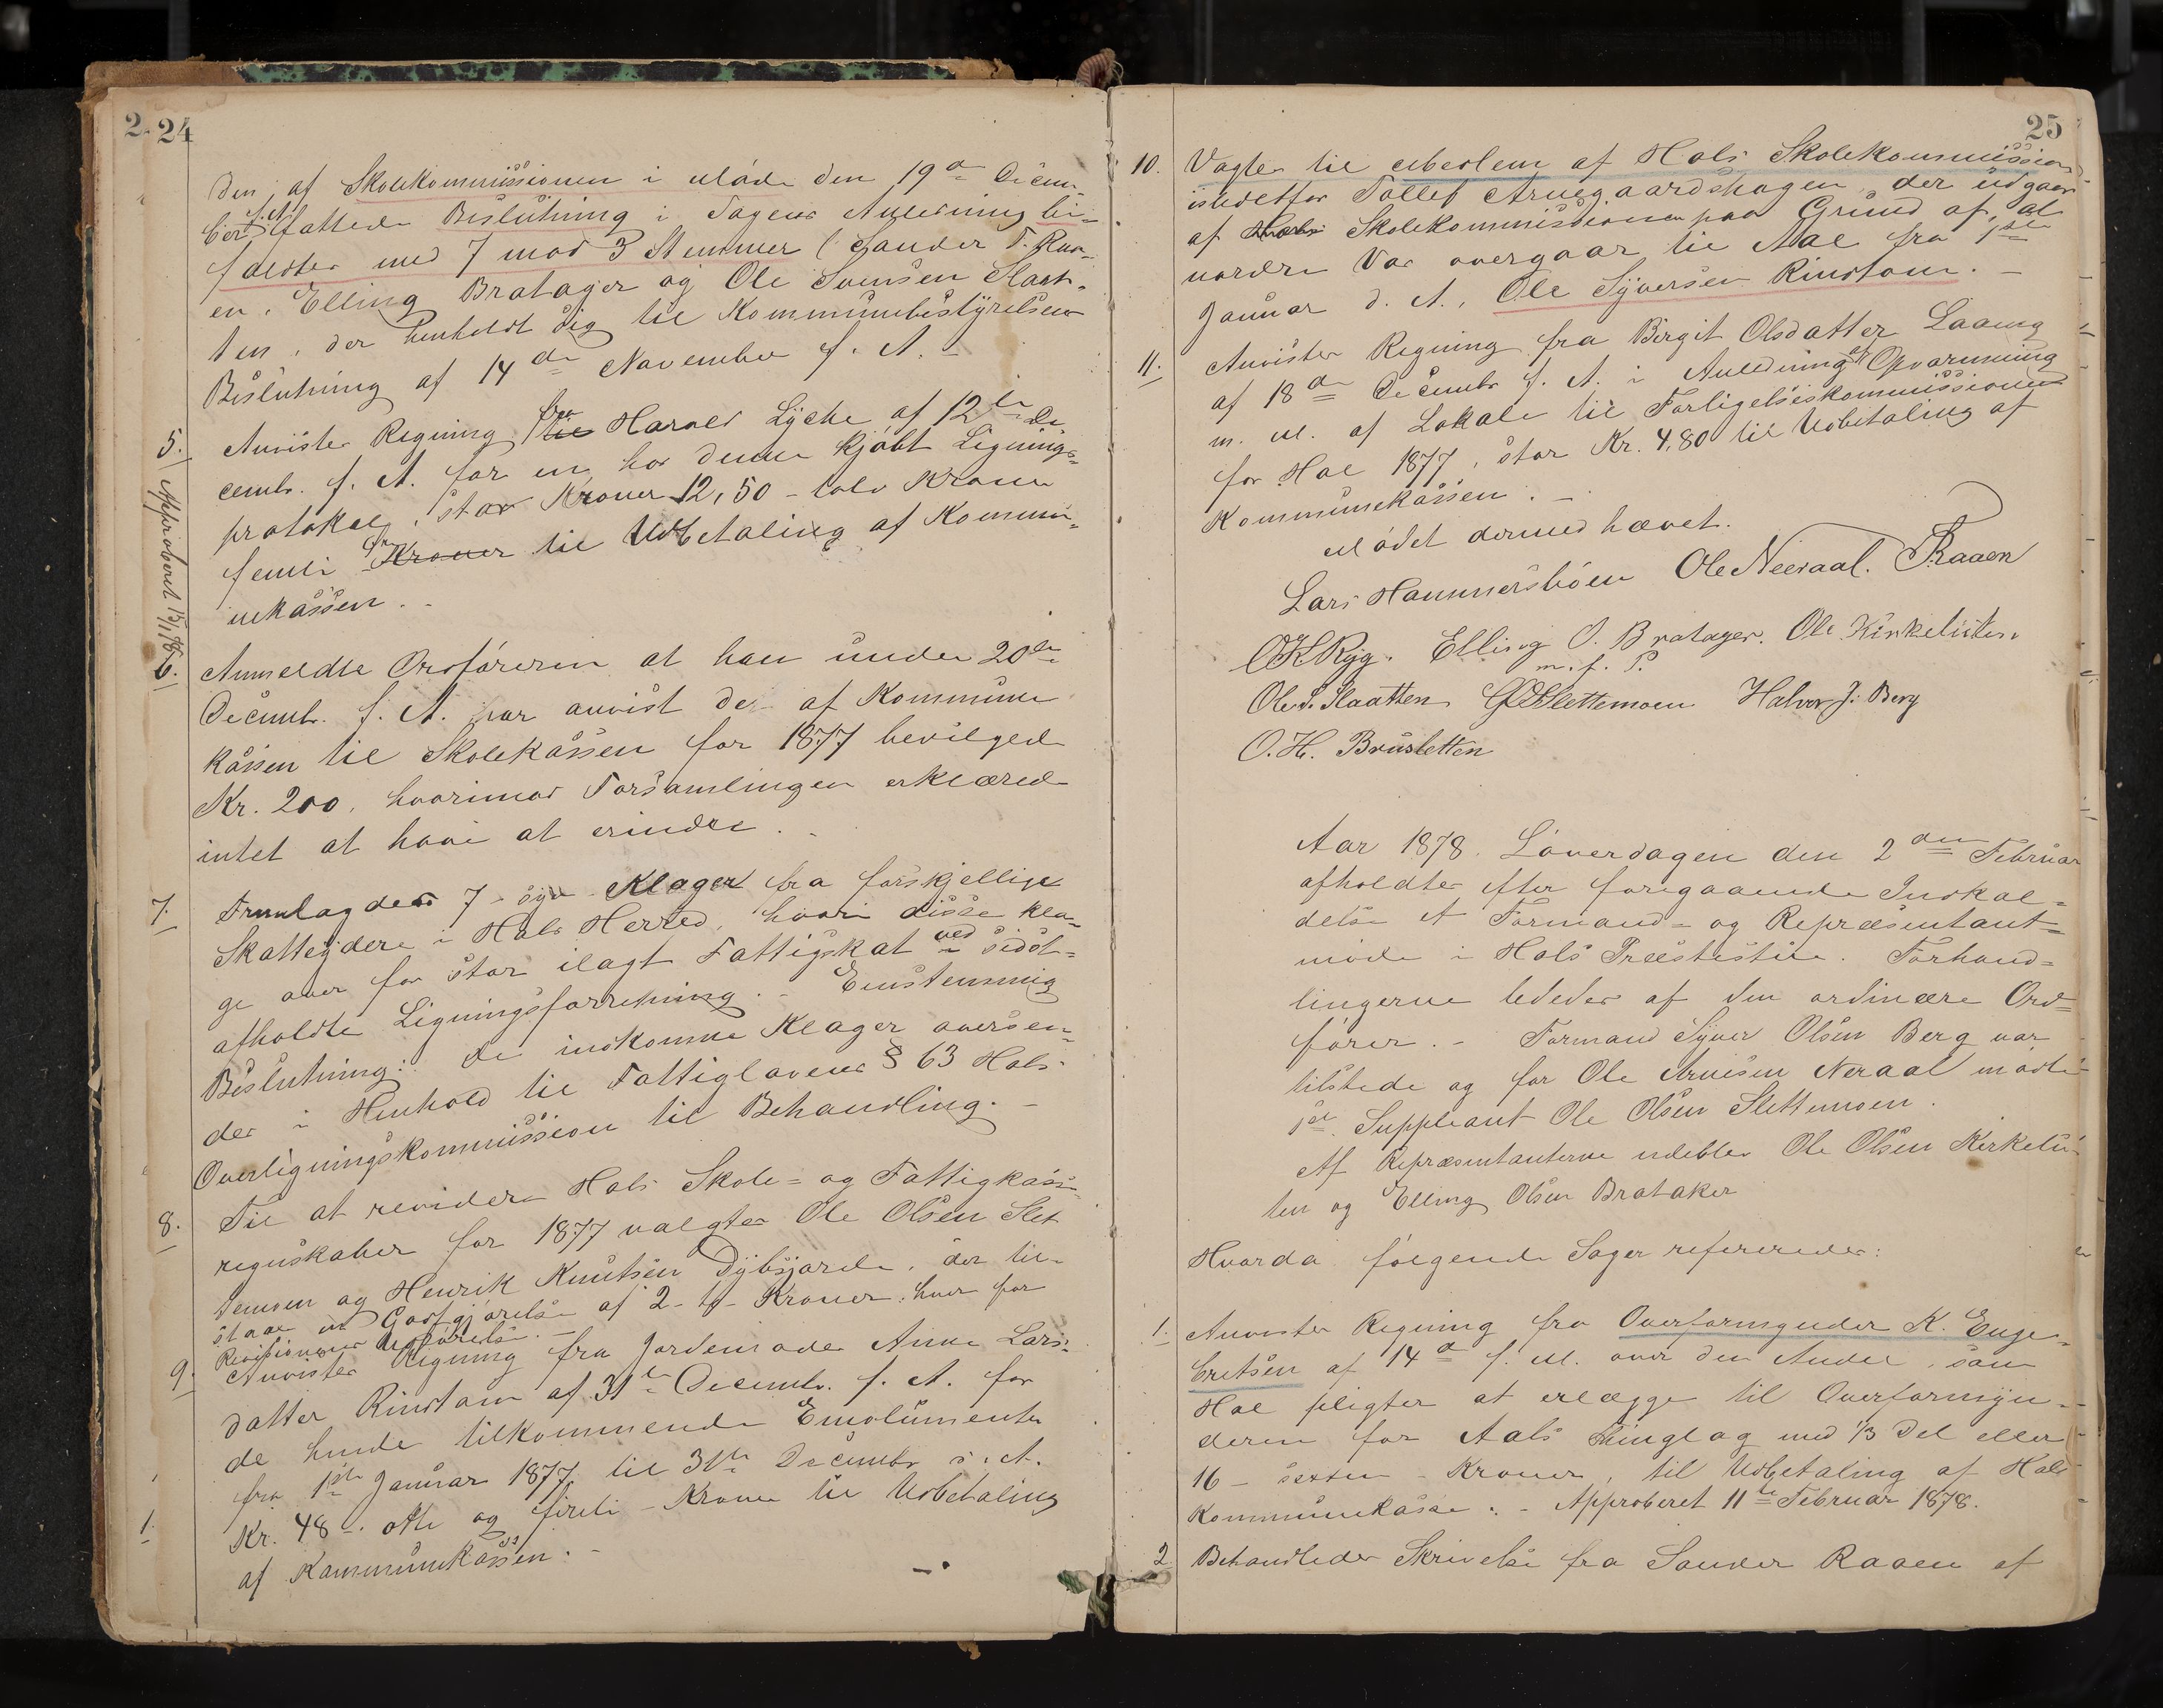 2. 24
den af Skolekommissionen i Møde den 19de Decem-
ber f. A. fattede Beslutning i Sagens Anledning bi-
faldtes med 7 mod 3 Stemmer (Sander T. Raa-
en, Elling Bratager og Ole Svensen Slaat-
ten, der henholdt sig til Kommunebestyrelsens
Beslutning af 14de November f. A. -
5. Anvistes Regning fra til Harald Lyche af 12te De-
cembr. f. A. for en hos denne kjøbt Lignings-
protokol, stor Kroner 12,50 - tolv Kroner
femti Øre Kroner til Udbetaling af Kommu-
nekassen. -
Approberet 12/1 78
6. Anmeldte Ordføreren at han under 20de
Decembr. f. A. har anvist de af Kommune
kassen til Skolekassen for 1877 bevilgede
Kr. 200, hvorimod Forsamlingen erklærede
intet at have at erindre. -
7. Fremlagdes 7 - syv Klager fra forskjellige
Skatteydere i Hols Herred, hvori disse kla-
ge over for stor ilagt Fattigskat ved sidst-
afholdte Ligningsforretning. - Eenstemmig
Beslutning: de indkomne Klager oversen-
des i Henhold til Fattiglovens § 63 Hols
Overligningskommission til Behandling. -
8. Til at revidere Hols Skole- og Fattigkasse
regnskaber for 1877 valgtes Ole Olsen Slet
temoen og Henrik Knutsen Dybsjorde, der til-
staaes en Godtgjørelse af 2 - to - Kroner hver for
Revisionens Udførelse. -
9. Anvistes Regning fra Jordemoder Anne Lars-
datter Rindtom af 31te Decembr. f. A. for
de hende tilkommende Emolumenter
fra 1ste Januar 1877 til 31te Decembr s. A.
Kr. 48 -. otte og firti - Kroner til Udbetaling
1.
af Kommunekassen. -
25
10. Valgtes til Medlem af Hols Skolekommission
istedetfor Tollef Arnegaardshagen, der udgaar
af Hols Skolekommissionen paa Grund af, at
nordre Dal overgaar til Aal fra 1ste
Januar d. A., Ole Syversen Rindtom. -
11. Anvistes Regning fra Birgit Olsdatter Laaeng
af 18de Decembr f. A. i Anledning af Opvarmning
m. M. af Lokale til Forligelseskommissionen
for Hol 1877, stor Kr. 4,80 til Udbetaling af
Kommunekassen. -
Mødet dermed hævet.
Lars Hammersbøen Ole Neeraal. TRaaen
OKRyg. Elling O. Bratager. Ole Kirkeliiten
m. f. P.
Ole S. Slaatten OOSlettemoen Halvor J. Berg
O. H. Brusletten
Aar 1878. Løverdagen den 2den Februar
afholdtes efter foregaaende Indkal-
delse et Formand- og Repræsentant-
møde i Hols Præstestue. Forhand-
lingerne lededes af den ordinære Ord-
fører. - Formand Syver Olsen Berg var
tilstede og for Ole Arnesen Neraal mødte
1ste Suppleant Ole Olsen Slettemoen.
Af Repræsentanterne udeblev Ole Olsen Kirkelii-
ten og Elling Olsen Brataker
Hvorda følgende Sager refereredes:
1. Anvistes Regning fra Overformynder K. Enge-
bretsen af 14de f. M. over den Andel, som
Hol pligter at erlægge til Overformyn-
deren for Aals Thinglag med 1/3 Del eller
16 - sexten - Kroner, til Udbetaling af Hols
Kommunekasse. - Approberet 11te Februar 1878.
2 Behandledes Skrivelse fra Sander Raaen af